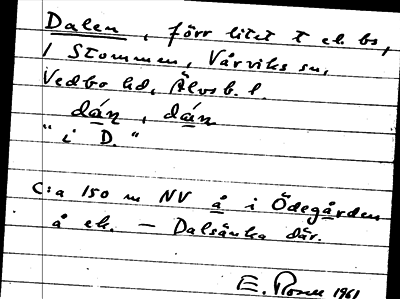 Dalen, förr litet t ek. bs,
/ Stommen, Vårviks sn,
Vedbo hd, Älvsb. l.
dán, dán
"i D."
C:a 150 m NV å i Ödegården
å ek. — Dalsänka där.
E. Rosell 1961